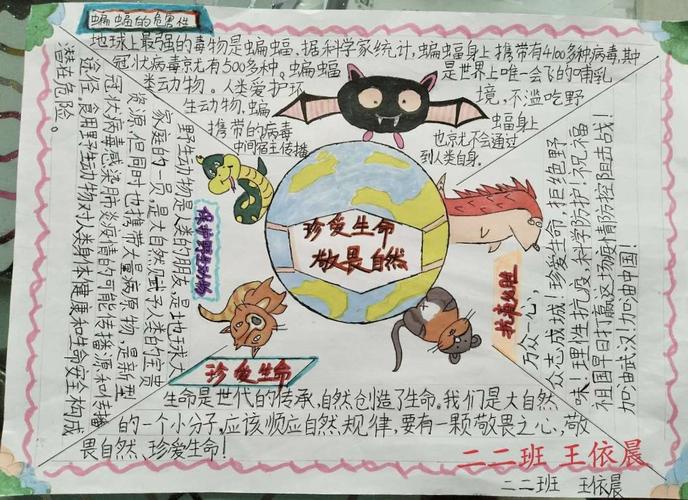 蝙蝠的危害性
地球上最强的毒物是蝙蝠,据科学家统计,蝙蝠身上携带有4100多种病毒,其中
冠状病毒就有500多种。蝙蝠是世界上唯一会飞的哺乳
类动物。人类爱护环境,不滥吃野
生动物,蝙蝠身上
携带的病毒也就不会通过
中间宿主传播到人类自身。
野生动物是人类的朋友,是地球大
家庭的一员,是大自然赋予人类的宝贵
资源,但同时也携带大量病原物,是新型
冠状病毒感染肺炎疫情的可能传播源和传播
途径,食用野生动物对人类身体健康和生命安全构成
潜在危险。
保护野生动物
珍爱生命
敬畏自然
抗毒必胜
万众一心,
众志成城!珍爱生命,拒绝野
味!理性抗疫,科学防护!祝福
祖国早日打赢这场疫情防控阻击战!
加油武汉!加油中国!
珍爱生命
生命是世代的传承,自然创造了生命。我们是大自然
的一个小分子,应该顺应自然规律,要有一颗敬畏之心,敬
畏自然、珍爱生命!
二二班 王依晨
二二班 王依晨